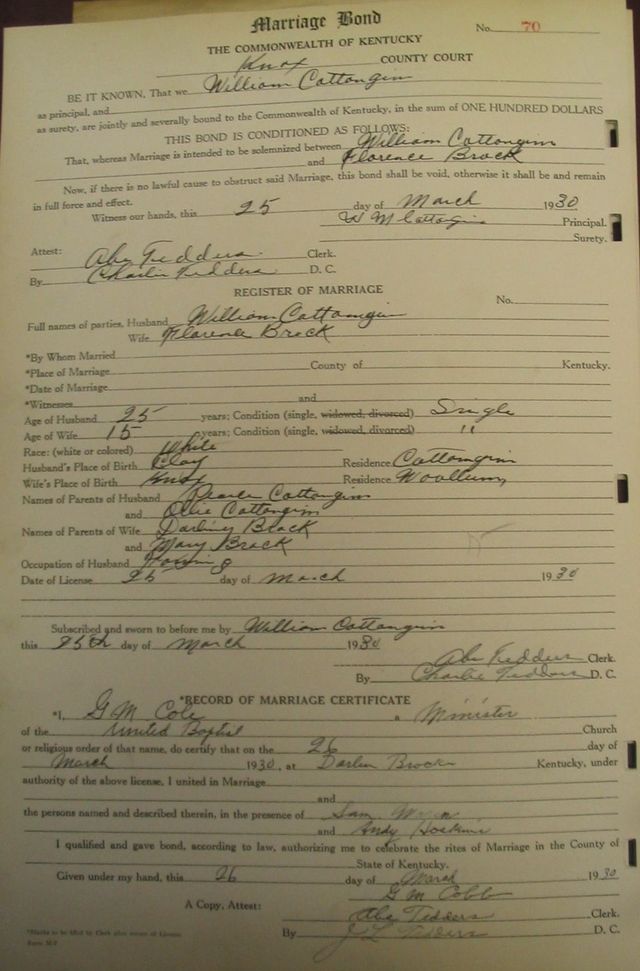 Marriage Bond
No. 70
THE COMMONWEALTH OF KENTUCKY
Knox COUNTY COURT
BE IT KNOWN, That we William Cottongim
as principal, and
as surety, are jointly and severally bound to the Commonwealth of Kentucky, in the sum of ONE HUNDRED DOLLARS
THIS BOND IS CONDITIONED AS FOLLOWS:
That, whereas Marriage is intended to be solemnized between William Cottongim
and Florence Brock
Now, if there is no lawful cause to obstruct said Marriage, this bond shall be void, otherwise it shall be and remain
in full force and effect.
Witness our hands, this 25 day of March 1930
Wm Cottongim Principal.
Surety.
Attest: Abe Tedders Clerk.
By Charlie Tedders D. C.
REGISTER OF MARRIAGE
No.
Full names of parties, Husband William Cottongim
Wife Florence Brock
*By Whom Married
*Place of Marriage County of Kentucky.
*Date of Marriage
*Witnesses and
Age of Husband 25 years; Condition (single, widowed, divorced) Single
Age of Wife 15 years; Condition (single, widowed, divorced) "
Race: (white or colored) White
Husband's Place of Birth Clay Residence Cottongim
Wife's Place of Birth Knox Residence Woollum
Names of Parents of Husband Cottongim
and Ollie Cottongim
Names of Parents of Wife Brock
and Mary Brock
Occupation of Husband Farming
Date of License 25 day of March 1930
Subscribed and sworn to before me by William Cottongim
this 25th day of March 1930
Abe Tedders Clerk.
By Charlie Tedders D. C.
*RECORD OF MARRIAGE CERTIFICATE
*I, G M Cole a Minister
of the United Baptist Church
or religious order of that name, do certify that on the 26 day of
March 1930, at Brock Kentucky, under
authority of the above license, I united in Marriage
and
the persons named and described therein, in the presence of Sam
and Andy Hoskins
I qualified and gave bond, according to law, authorizing me to celebrate the rites of Marriage in the County of
State of Kentucky.
Given under my hand, this 26 day of March 1930
G M Cobb
A Copy, Attest: Abe Tedders Clerk.
By J L Tedders D. C.
*Blanks to be filled by Clerk after return of License